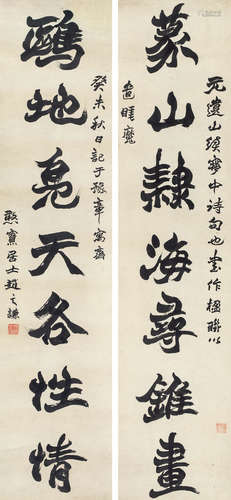 元遺山夢中詩句也書作楹聯以
篆山隸海尋錐畫
遣睡魔
癸未秋日記于豫章寓齋
鷗地鳧天各性情
憨寮居士趙之謙